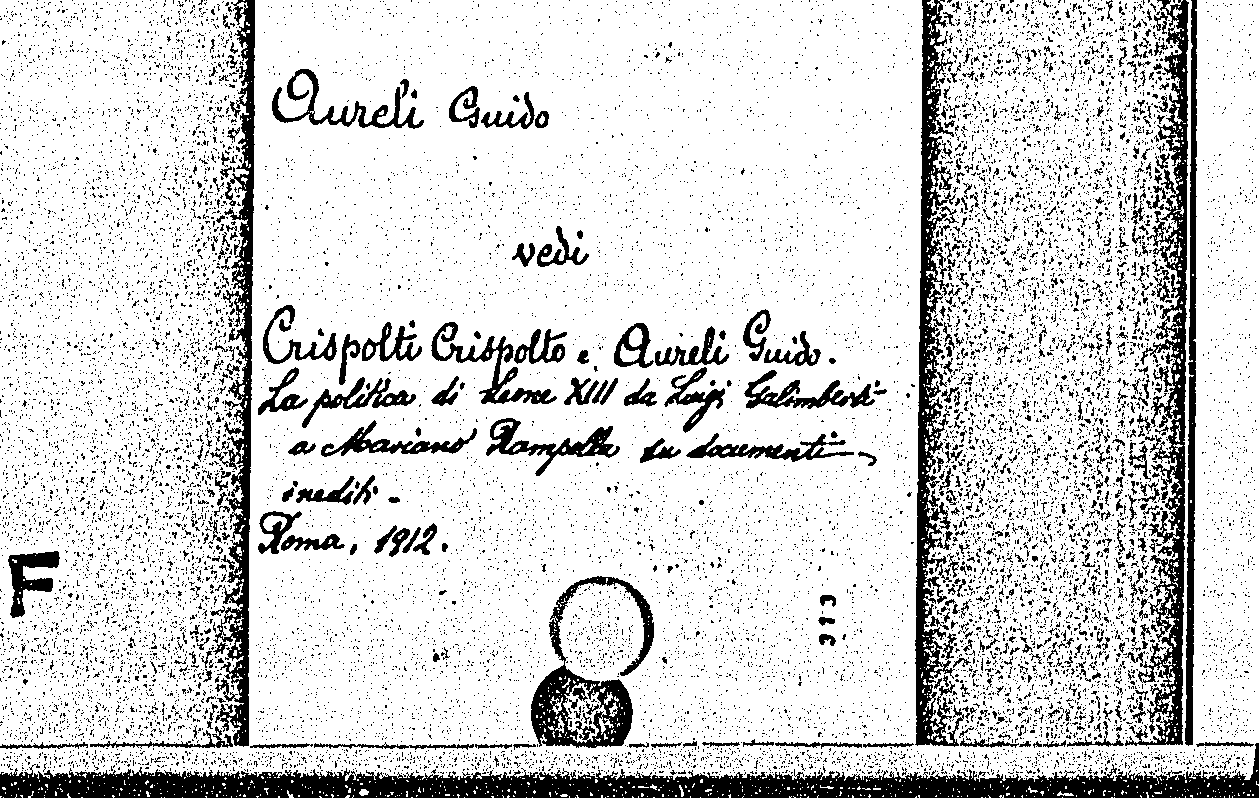 Aureli Guido
vedi
Crispolti Crispolto e Aureli Guido.
La politica di Leone XIII da Luigi Galimberti
a Mariano Rampolla su documenti
inediti -
Roma, 1912.
F
313